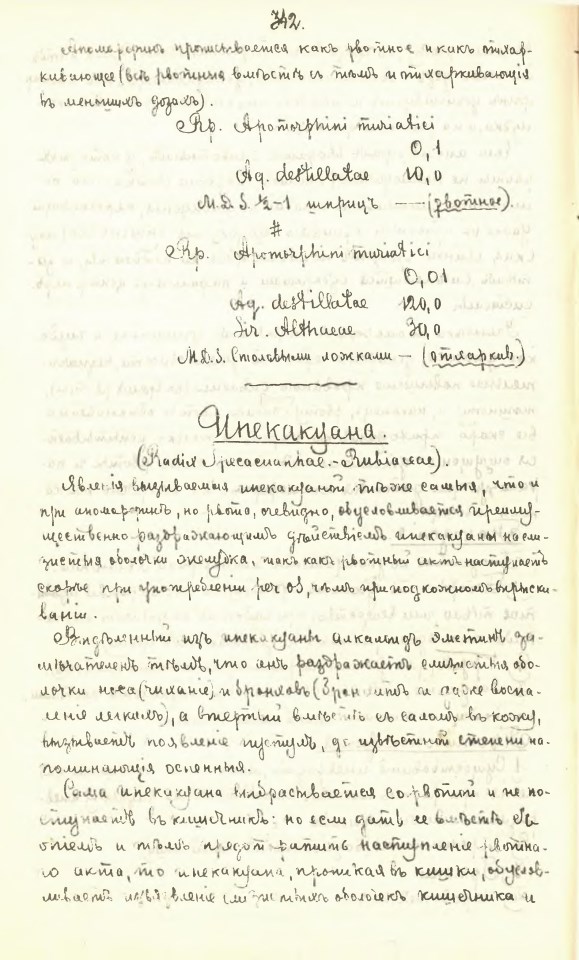 342.
Апоморфинъ прописывается какъ рвотное и какъ отхар-
кивающее (всѣ рвотныя вмѣстѣ съ тѣмъ и отхаркивающія
въ меньшихъ дозахъ).
Rp. Apomorphini muriatici
0,1
Aq. destillatae 10,0
M.D.S. ½-1 шприцъ — (рвотное).
#
Rp. Apomorphini muriatici
0,01
Aq. destillatae 120,0
Sir. Althaeae 30,0
M.D.S. Столовыми ложками — (отхаркив.)
Ипекакуана.
(Radix Ipecacuanhae.-Rubiaceae).
Явленія вызываемыя ипекакуаной тѣже самыя, что и
при апоморфинѣ, но рвота, очевидно, обусловливается преиму-
щественно раздражающимъ дѣйствіемъ ипекакуаны на сли-
зистыя оболочки желудка, такъ какъ рвотный актъ наступаетъ
скорѣе при употребленіи per os, чѣмъ при подкожномъ впрыски-
ваніи.
Выдѣленный изъ ипекакуаны алкалоидъ эметинъ за-
мѣчателенъ тѣмъ, что онъ раздражаетъ слизистыя обо-
лочки носа (чиханіе) и бронховъ (бронхитъ и даже воспа-
леніе легкихъ), а втертый вмѣстѣ съ саломъ въ кожу,
вызываетъ появленіе пустулъ, до извѣстной степени на-
поминающія оспенныя.
Сама ипекакуана выбрасывается со рвотой и не по-
ступаетъ въ кишечникъ: но если дать ее вмѣстѣ съ
опіемъ и тѣмъ предотвратить наступленіе рвотна-
го акта, то ипекакуана, проникая въ кишки, обуслов-
ливаетъ изъязвленіе слизистыхъ оболочекъ кишечника и